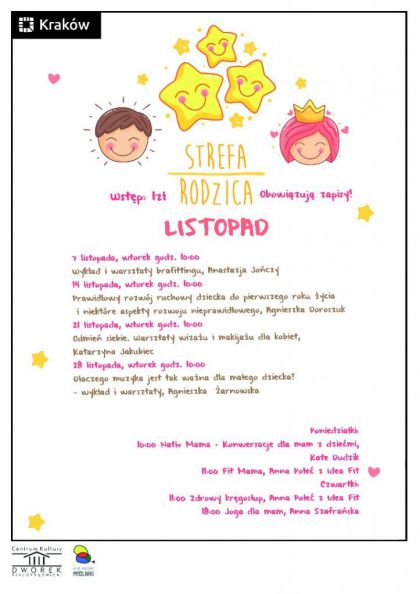 Kraków
STREFA
RODZICA
Wstęp: 1zł
Obowiązują zapisy!
LISTOPAD
7 listopada, wtorek godz. 10:00
Wykład i warsztaty brafittingu, Anastazja Jończy
14 listopada, wtorek godz. 10:00
Prawidłowy rozwój ruchowy dziecka do pierwszego roku życia
i niektóre aspekty rozwoju nieprawidłowego, Agnieszka Doroszuk
21 listopada, wtorek godz. 10:00
Odmień siebie. Warsztaty wizażu i makijażu dla kobiet,
Katarzyna Jakubiec
28 listopada, wtorek godz. 10:00
Dlaczego muzyka jest tak ważna dla małego dziecka?
- wykład i warsztaty, Agnieszka Żarnowska
Poniedziałki:
10:00 Nativ Mama - Konwersacje dla mam z dziećmi,
Kate Dudzik
11:00 Fit Mama, Anna Puleć z Idea Fit
Czwartki:
11:00 Zdrowy kręgosłup, Anna Puleć z Idea Fit
18:00 Joga dla mam, Anna Szafrańska
Centrum Kultury
DWOREK
BIAŁOPRĄDNICKI
KLUB KULTURY
MYDLNIKI